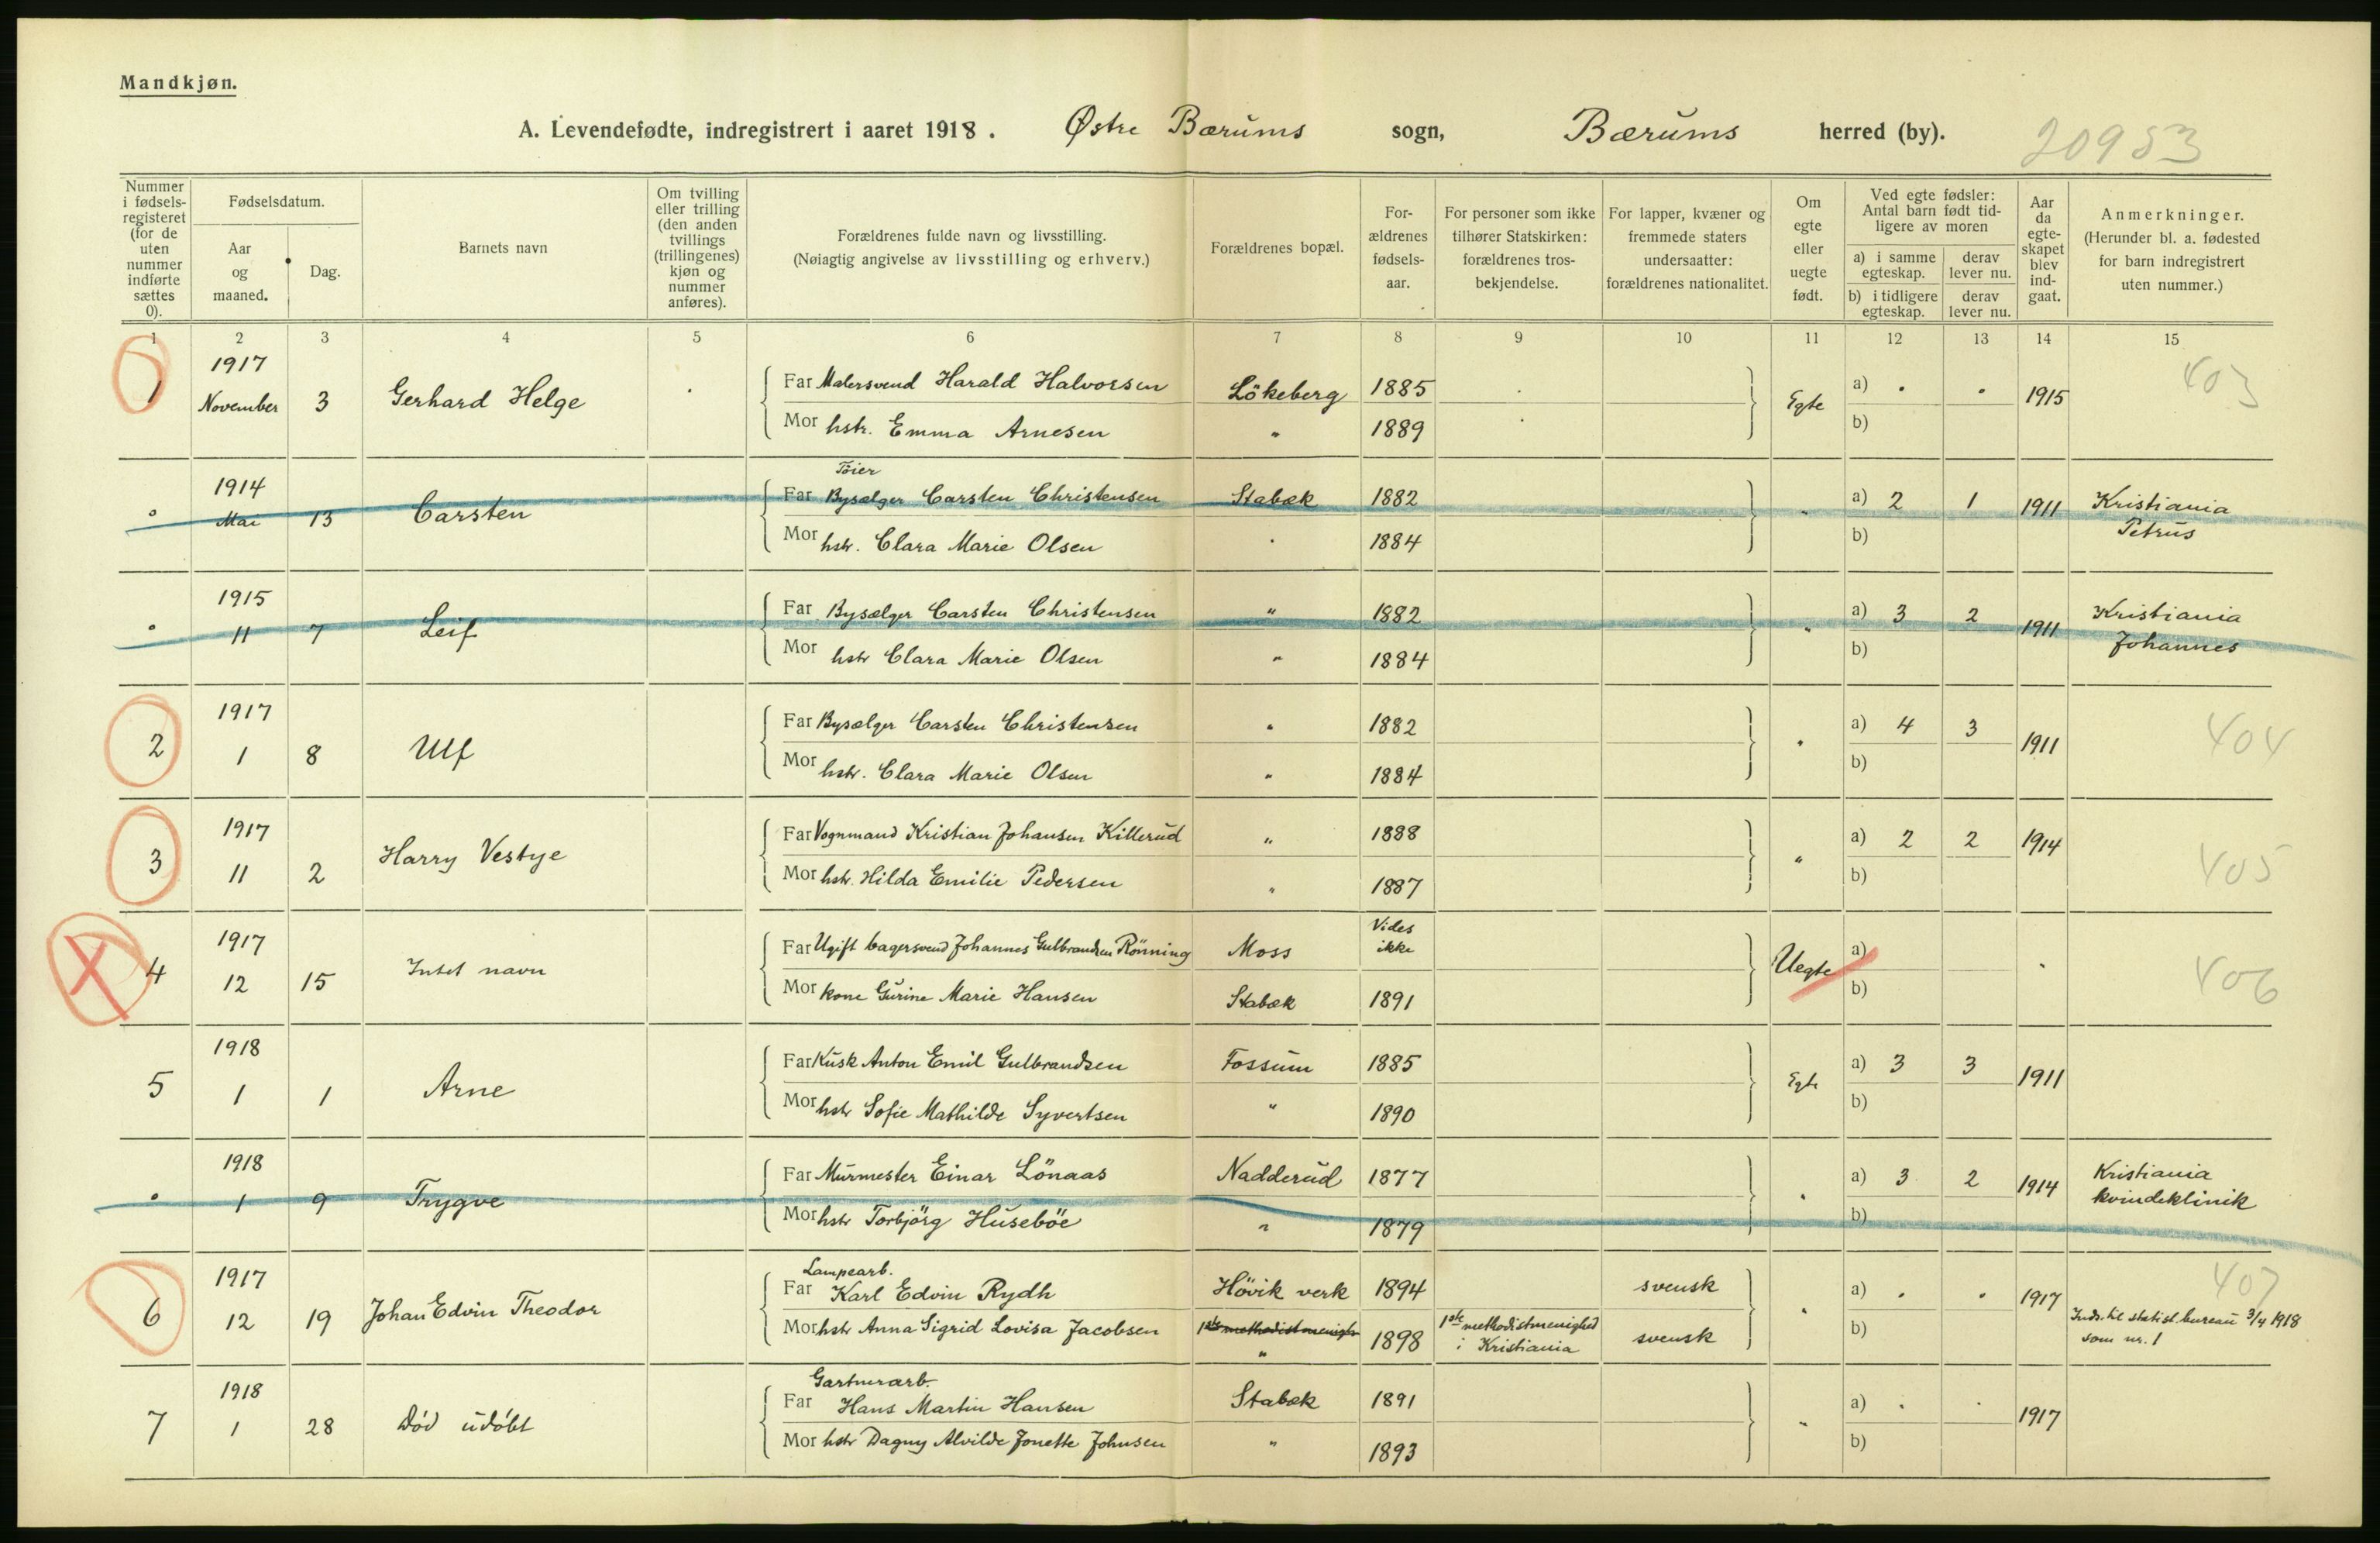 Mandkjøn.
A. Levendefødte, indregistrert i aaret 1918. Østre Bærums sogn, Bærums herred (by). 20953
Nummer i fødselsregisteret (for de uten nummer indførte sættes 0).
Fødselsdatum.
Aar og maaned.
Dag.
Barnets navn
Om tvilling eller trilling (den anden tvillings (trillingenes) kjøn og nummer anføres).
Forældrenes fulde navn og livsstilling.
(Nøiagtig angivelse av livsstilling og erhverv.)
Forældrenes bopæl.
Forældrenes fødselsaar.
For personer som ikke tilhører Statskirken: forældrenes trosbekjendelse.
For lapper, kvæner og fremmede staters undersaatter: forældrenes nationalitet.
Om egte eller uegte født.
Ved egte fødsler: Antal barn født tidligere av moren
a) i samme egteskap.
derav lever nu.
b) i tidligere egteskap.
derav lever nu.
Aar da egteskapet blev indgaat.
Anmerkninger.
(Herunder bl. a. fødested for barn indregistrert uten nummer.)
1 2 3 4 5 6 7 8 9 10 11 12 13 14 15
1 1917 November 3 Gerhard Helge
Far Malersvend Harald Halvorsen Lökeberg 1885 Egte a) 1915 403
Mor hstr. Emma Arnesen " 1889 b)
0 1914 Mai 13 Carsten
Töier
Far Bysælger Carsten Christensen Stabæk 1882 " a) 2 1 1911 Kristiania
Mor hstr. Clara Marie Olsen 1884 b) Petrus
0 1915 11 7 Leif
Far Bysælger Carsten Christensen " 1882 " a) 3 2 1911 Kristiania
Mor hstr Clara Marie Olsen " 1884 b) Johannes
2 1917 1 8 Ulf
Far Bysælger Carsten Christensen " 1882 " a) 4 3 1911 404
Mor hstr. Clara Marie Olsen " 1884 b)
3 1917 11 2 Harry Vestye
Far Vognmand Kristian Johansen Killerud " 1888 " a) 2 2 1914 405
Mor hstr. Hilda Emilie Pedersen " 1887 b)
4 1917 12 15 Intet navn
Far Ugift bagersvend Johannes Gulbrandsen Rönning Moss Vides ikke Uegte a) 406
Mor kone Gurine Marie Hansen Stabæk 1891 b)
5 1918 1 1 Arne
Far Kusk Anton Emil Gulbrandsen Fossum 1885 Egte a) 3 3 1911
Mor hstr Sofie Mathilde Syvertsen " 1890 b)
0 1918 1 9 Trygve
Far Murmester Einar Lönaas Nadderud 1877 " a) 3 2 1914 Kristiania
Mor hstr Torbjörg Huseböe " 1879 b) kvindeklinik
6 1917 12 19 Johan Edvin Theodor
Lampearb.
Far Karl Edvin Rydh Hövik verk 1894 svensk " a) 1917 407
Mor hstr Anna Sigrid Lovisa Jacobsen 1ste methodistmenigh " 1898 1ste methodistmenighed i Kristiania svensk b) Inds. til statist. bureau 3/4 1918 som nr. 1
7 1918 1 28 Död udöbt
Gartnerarb.
Far Hans Martin Hansen Stabæk 1891 " a) 1917
Mor hstr Dagny Alvilde Jonette Johnsen " 1893 b)